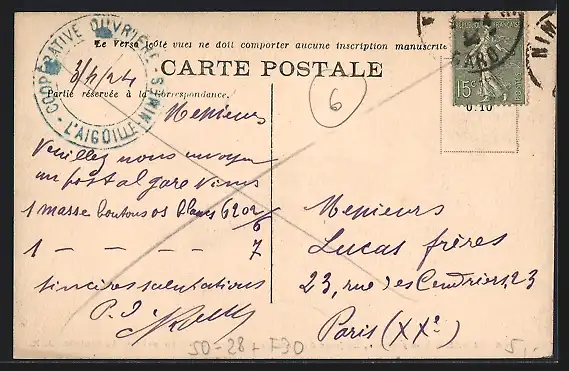 COOPÉRATIVE OUVRIÈRE - St MIN - L'AIGOUAL -
Le Verso (côté vue) ne doit comporter aucune inscription manuscrite
CARTE POSTALE
Partie réservée à la Correspondance.
RÉPUBLIQUE FRANÇAISE
15c
GARD
MIN
0.10
6
3/1/24
Messieurs
Veuillez nous envoyer
un postal gare
1 masse boutons os blancs 6202/6
1 — — — — 7
sincères salutations
P.
Messieurs
Lucas frères
23, rue des Cendriers, 23
Paris (XXe)
50-28 + F30
5,-